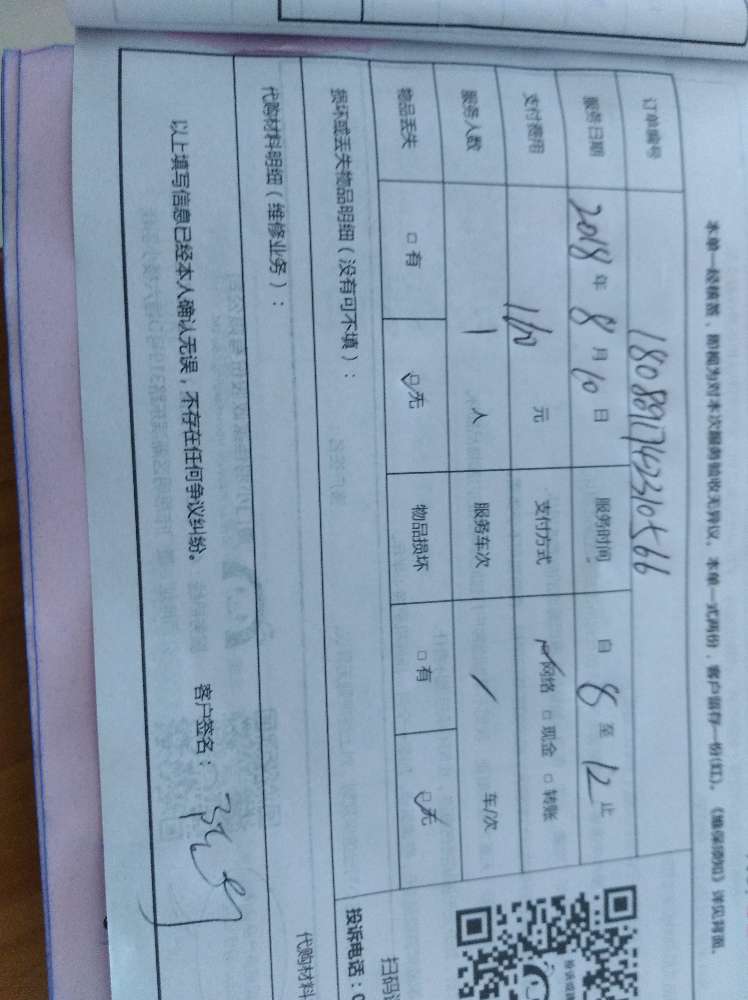 本单一经核签，即视为对本次服务验收无异议。本单一式两份，客户留存一份(红)。《维保须知》详见背面。
订单编号 180891742310566
服务日期 2018年8月10日 服务时间 自8至12止
支付费用 160元 支付方式 ☑网络 □现金 □转账
服务人数 1人 服务车次 / 车/次
物品丢失 □有 ☑无 物品损坏 □有 ☑无
损坏或丢失物品明细（没有可不填）：
投诉电话：
扫码
代购材料明细（维修业务）：
代购材料
以上填写信息已经本人确认无误，不存在任何争议纠纷。 客户签名：